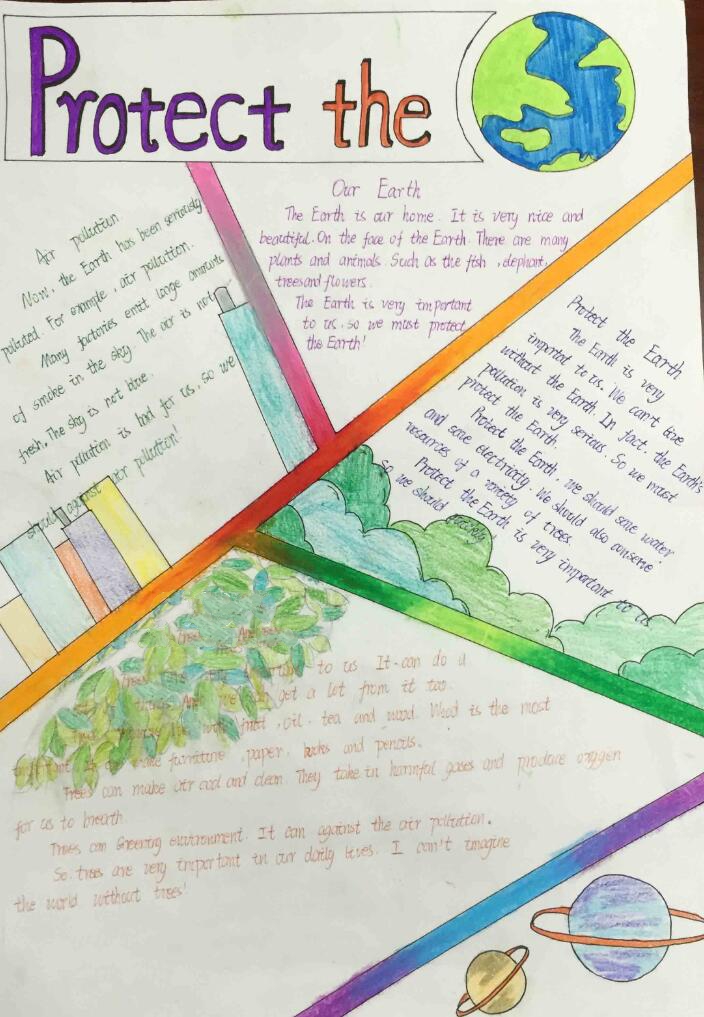 Protect the
Our Earth
The Earth is our home. It is very nice and
beautiful. On the face of the Earth. There are many
plants and animals. Such as the fish, elephant,
trees and flowers.
The Earth is very important
to us, so we must protect
the Earth!
Air pollution
Now, the Earth has been seriously
polluted. For example, air pollution.
Many factories emit large amounts
of smoke in the sky. The air is not
fresh. The sky is not blue.
Air pollution is bad for us, so we
should against air pollution!
Protect the Earth
The Earth is very
important to us. We can't live
without the Earth. In fact, the Earth's
pollution is very serious. So we must
protect the Earth.
Protect the Earth, we should save water
and save electricity. We should also conserve
resources of a variety of trees
Protect the Earth is very important to us
So we should
to us. It can do a
got a lot from it too.
food, oil, tea and wood. Wood is the most
make furniture, paper, books and pencils.
Trees can make air cool and clean. They take in harmful gases and produce oxygen
for us to breath
Trees can Greening environment. It can against the air pollution.
So, trees are very important in our daily lives. I can't imagine
the world without trees!